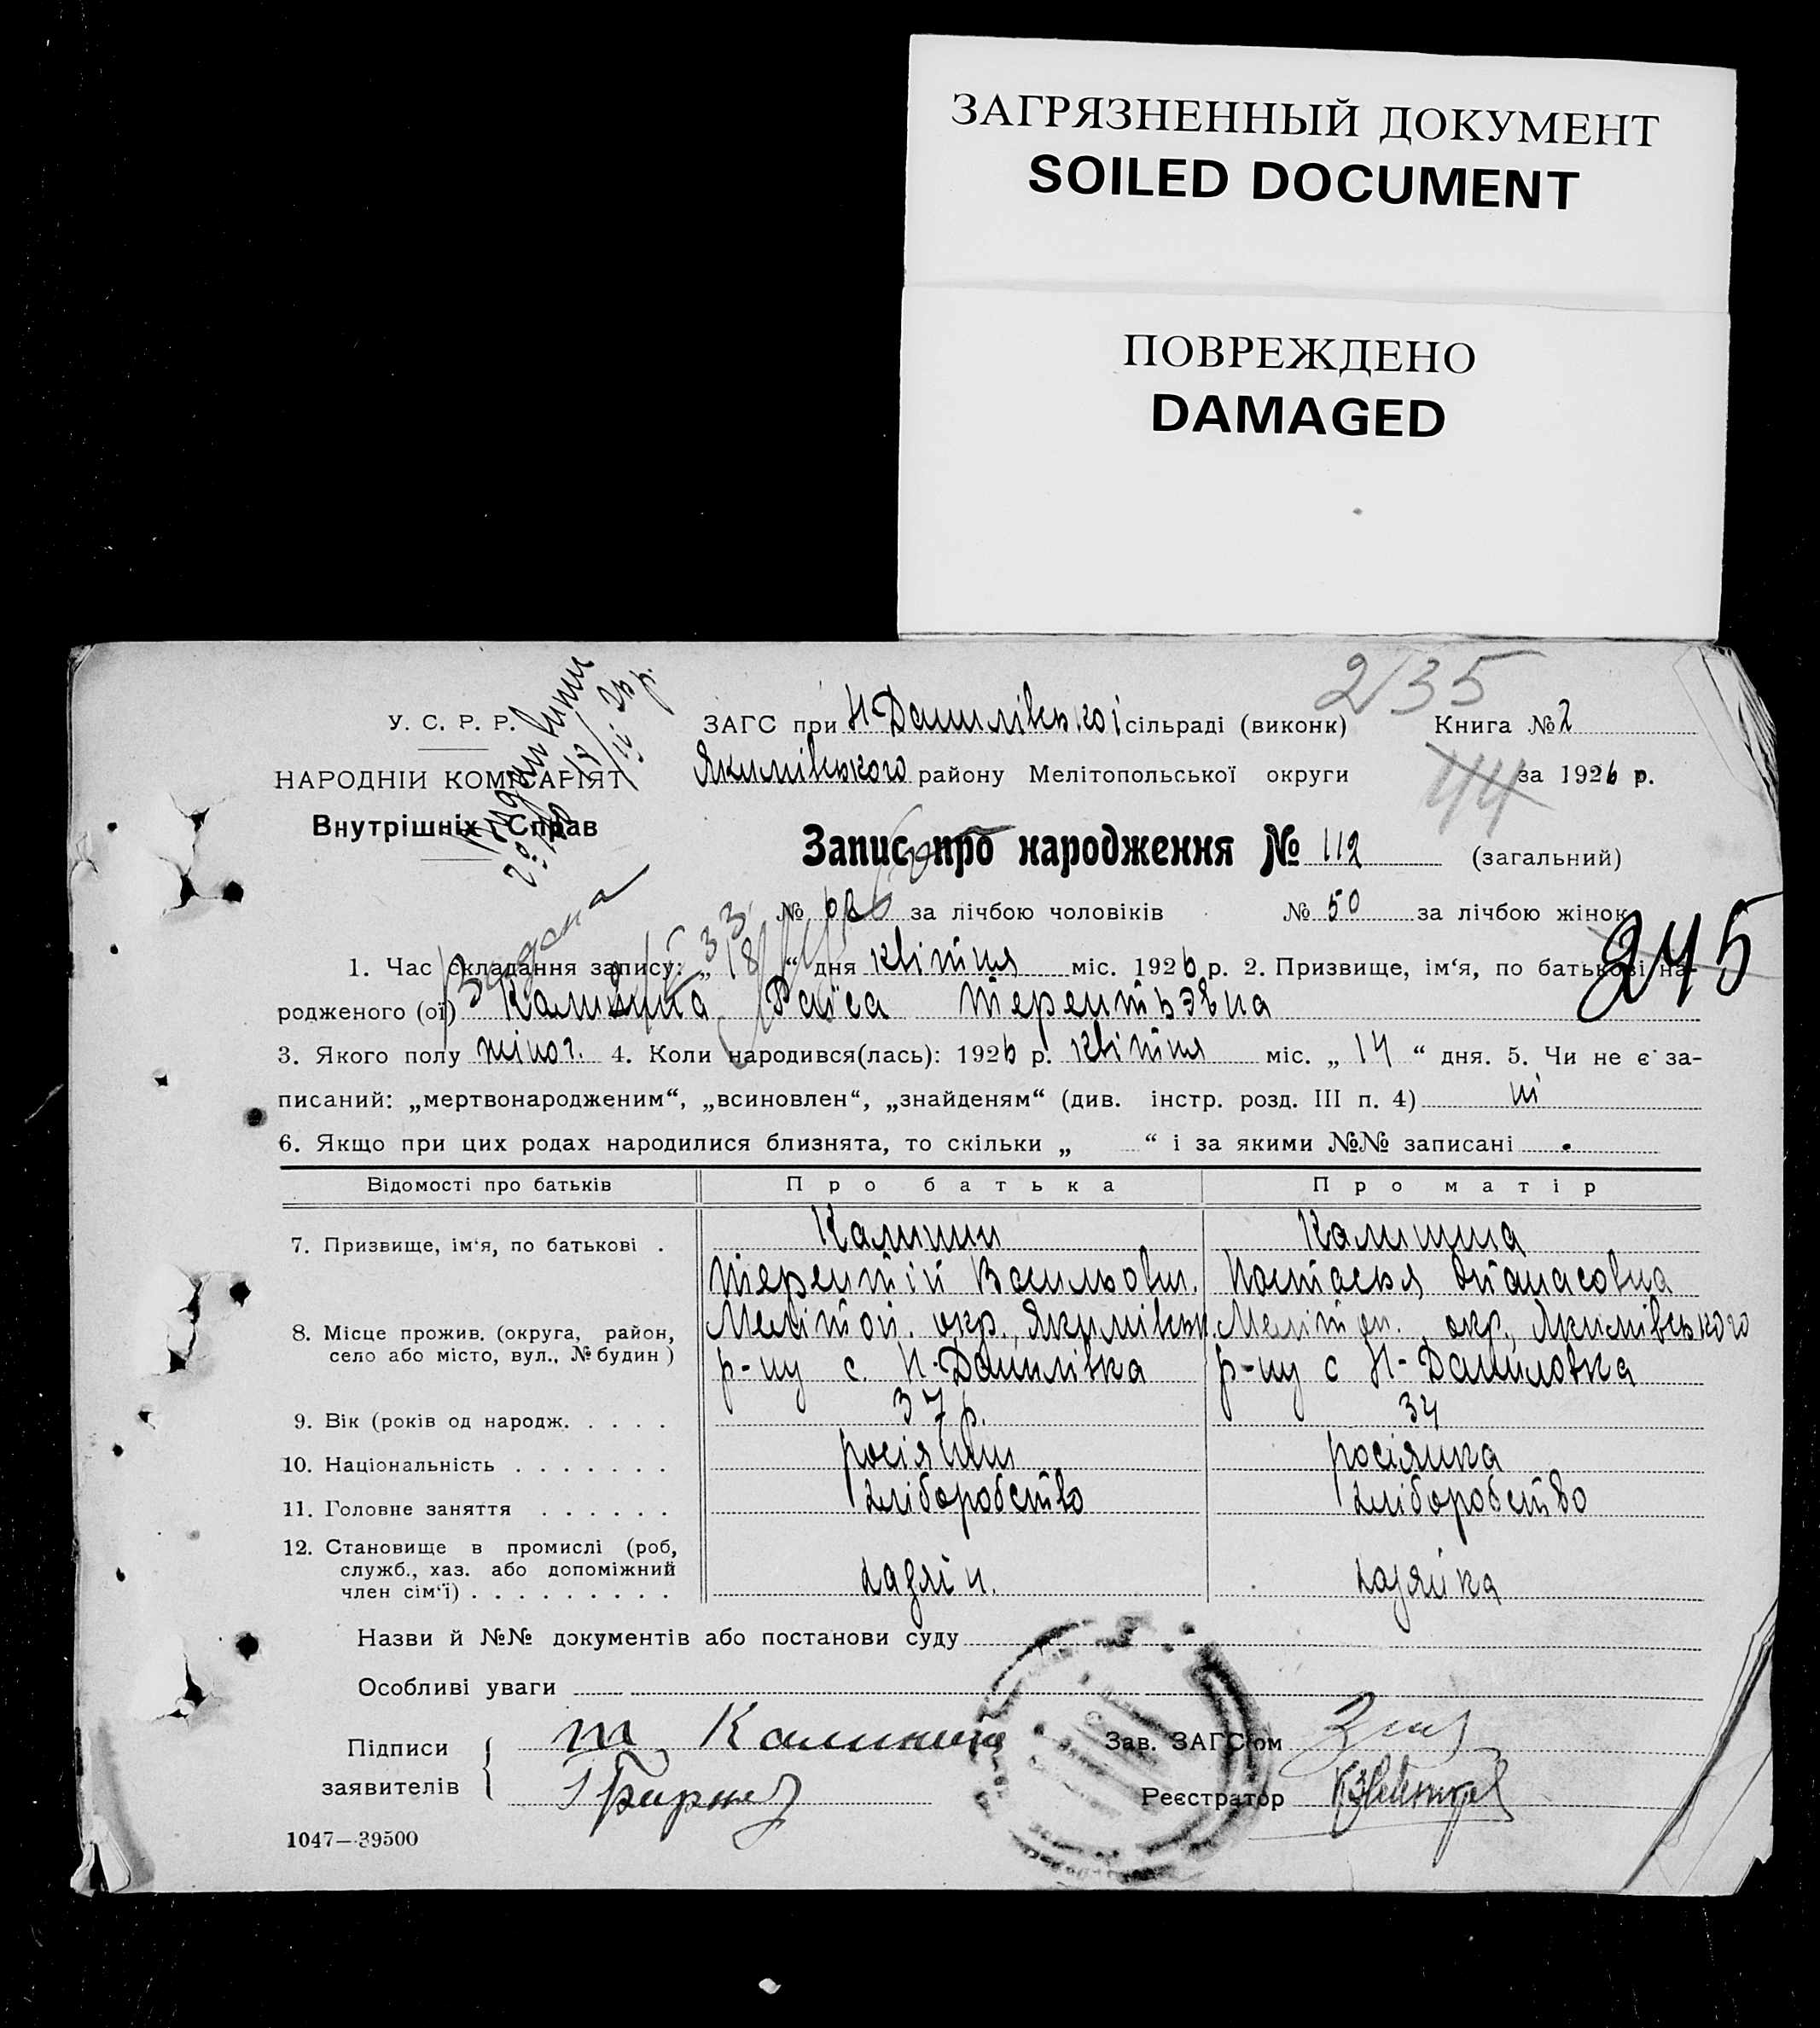 ЗАГРЯЗНЕННЫЙ ДОКУМЕНТ
SOILED DOCUMENT
ПОВРЕЖДЕНО
DAMAGED
235
У. С. Р. Р.
ЗАГС при Н-Данилівської сільраді (виконк) Книга № 2
НАРОДНІЙ КОМІСАРІЯТ
Якимівського району Мелітопольської округи за 1926 р.
44
Внутрішніх Справ
Запис про народження № 112 (загальний)
№ за лічбою чоловіків № 50 за лічбою жінок
245
1. Час складання запису: „ 18 “ дня квітня міс. 1926 р. 2. Призвище, ім‘я, по батькові на-
родженого (ої) Калініна Раїса Терентьэвна
3. Якого полу жіноч. 4. Коли народився(лась): 1926 р. квітня міс. „ 14 “ дня. 5. Чи не є за-
писаний: „мертвонародженим“, „всиновлен“, „знайденям“ (див. інстр. розд. III п. 4) ні
6. Якщо при цих родах народилися близнята, то скільки „ “ і за якими №№ записані
Відомості про батьків Про батька Про матір
7. Призвище, ім‘я, по батькові . Калинин Калинина
Терентій Васильович. Настасья Опанасовна
8. Місце прожив. (округа, район, село або місто, вул., № будин) Мелітоп. окр., Якимівськ. Мелітоп. окр., Якимівського
р-ну с. Н-Данилівка р-ну с Н-Даниловка
9. Вік (років од народж. . . . . 37 р. 34
10. Національність . . . . . . . росіянин росіянка
11. Головне заняття . . . . . . хліборобство хліборобство
12. Становище в промислі (роб, служб., хаз. або допоміжний член сім‘ї) . . . . . . . . . хазяін. хазяйка
Назви й №№ документів або постанови суду
Особливі уваги
Підписи заявителів
Т Калинин
Зав. ЗАГС‘ом
Реєстратор
1047—39500